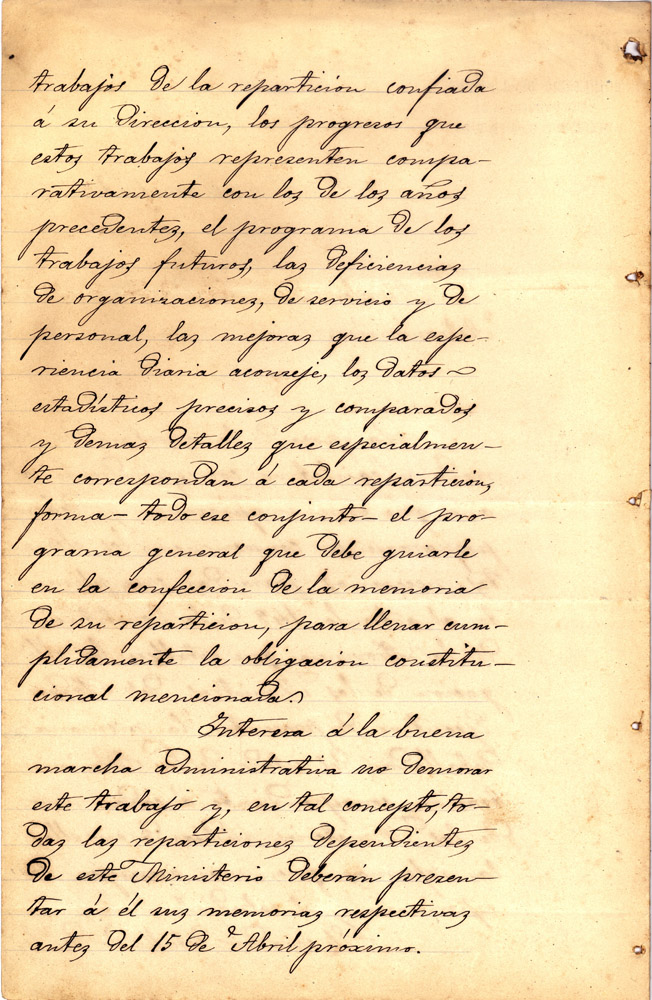 trabajos de la repartición confiada
á su direccion, los progresos que
estos trabajos representen compa-
rativamente con los de los años
precedentes, el programa de los
trabajos futuros, las deficiencias
de organizaciones, de servicio y de
personal, las mejoras que la espe-
riencia diaria aconseje, los datos
estadísticos precisos y comparados
y demas detalles que especialmen-
te correspondan á cada reparticion,
forma - todo ese conjunto - el pro-
grama general que debe guiarle
en la confeccion de la memoria
de su reparticion, para llenar cum-
plidamente la obligacion constitu-
cional mencionada.
Interesa á la buena
marcha administrativa no demorar
este trabajo y, en tal concepto, to-
das las reparticiones dependientes
de este Ministerio deberán presen-
tar á él sus memorias respectivas
antes del 15 de Abril próximo.